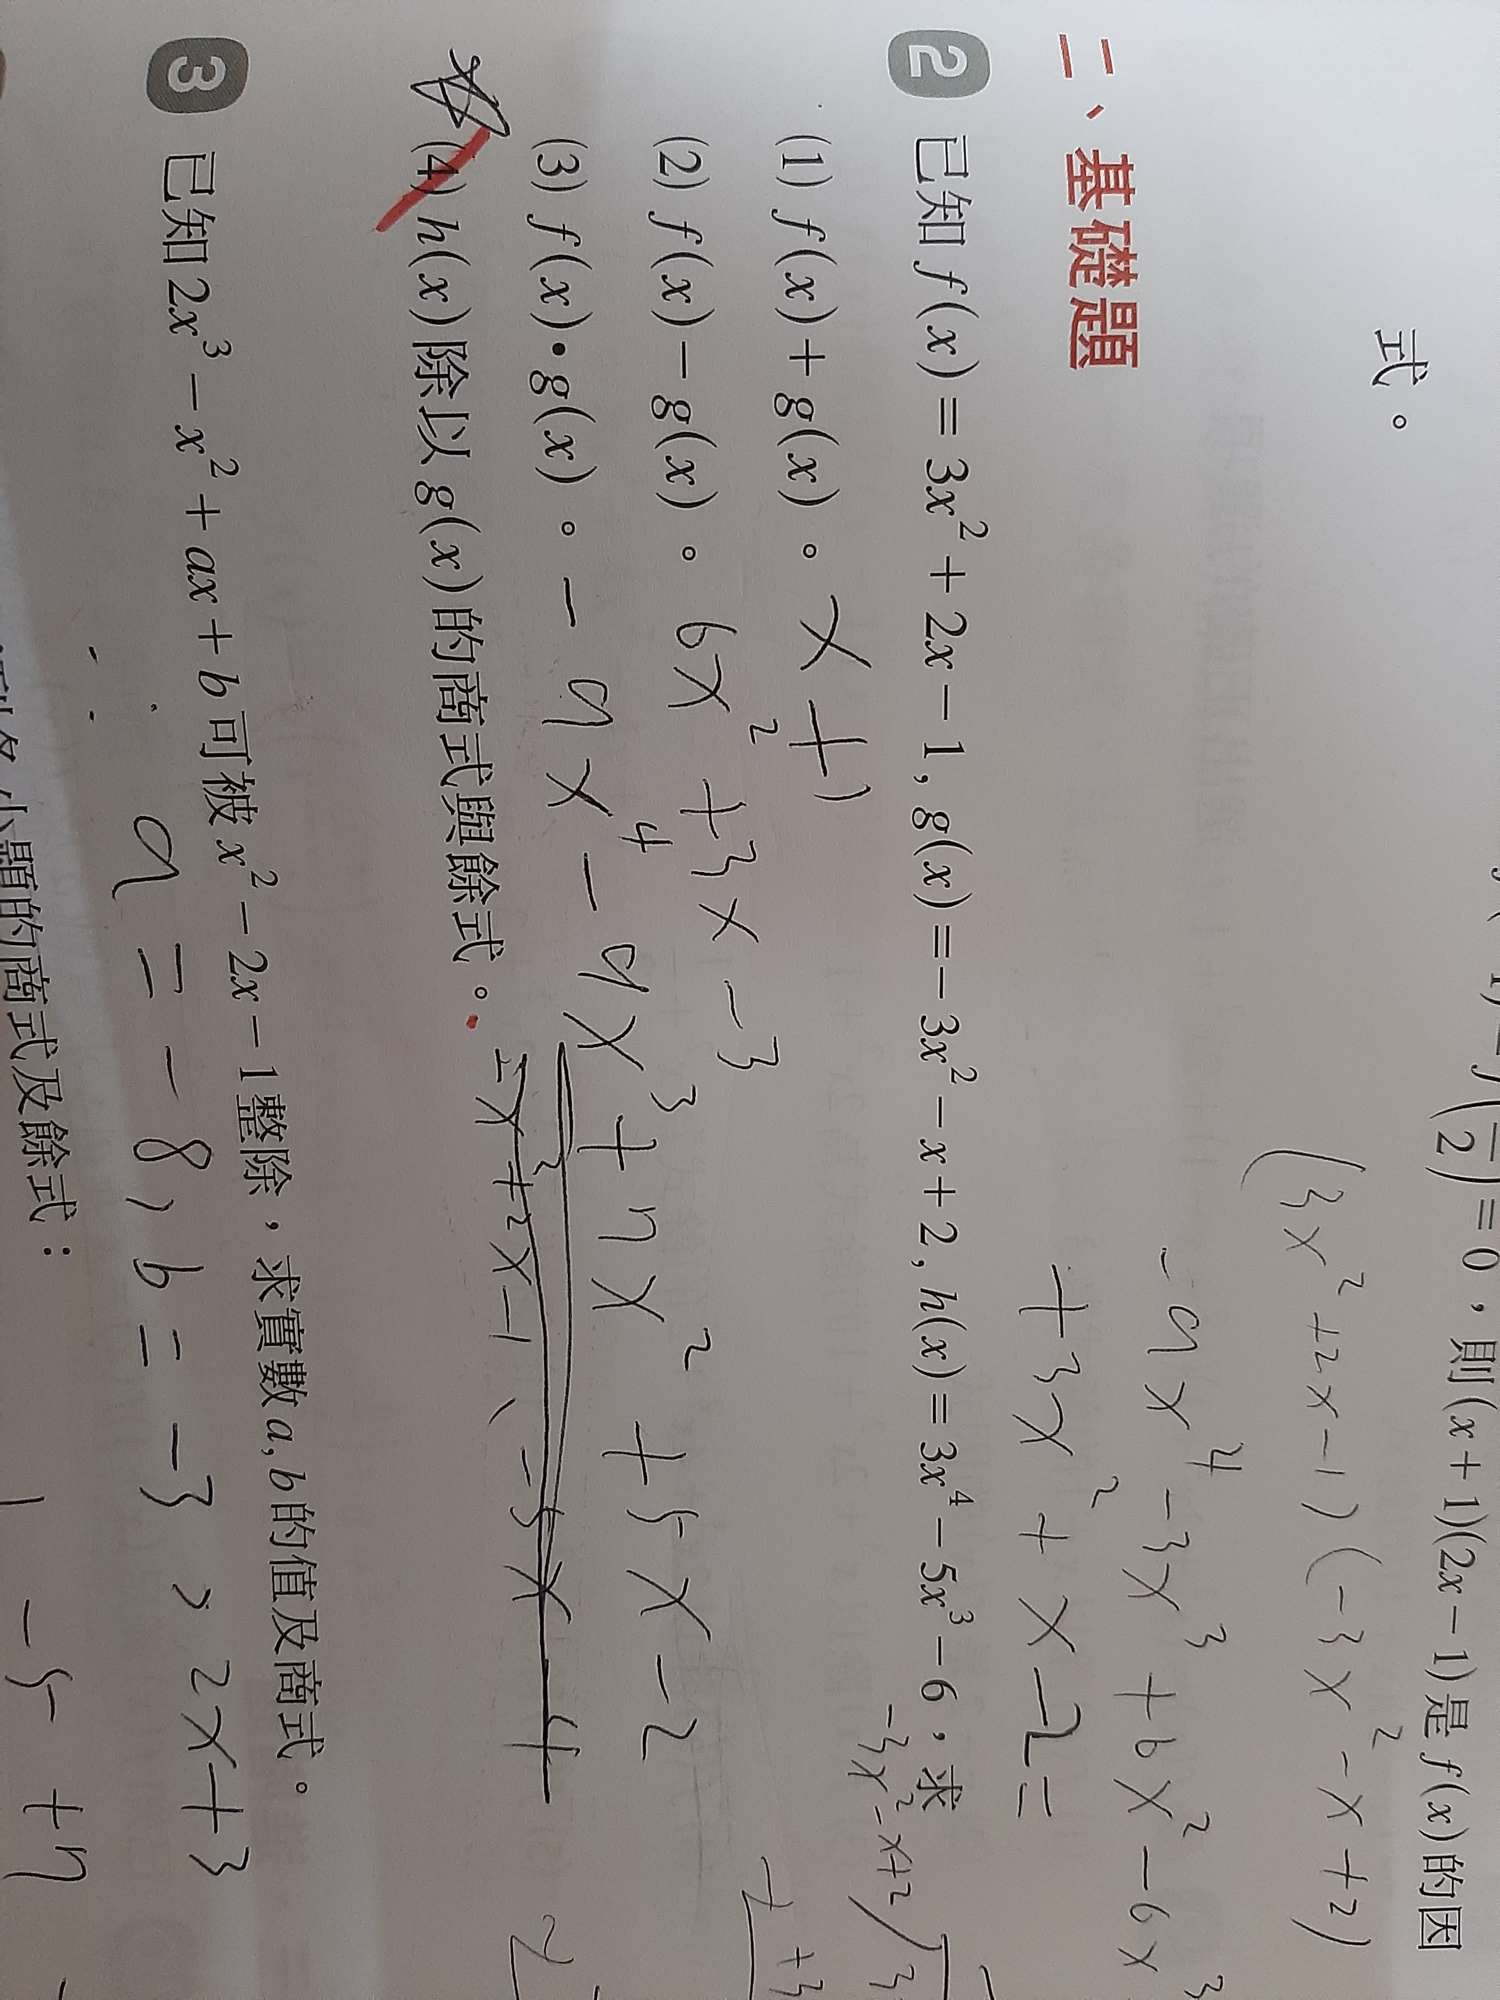 = 0，則(x+1)(2x-1)是 f(x)的因
式。
(3x²+2x-1)(-3x²-x+2)
-9x⁴-3x³+6x²-6x³
+3x²+x-2=
二、基礎題
2 已知 f(x)=3x²+2x-1, g(x)=-3x²-x+2, h(x)=3x⁴-5x³-6，求
(1) f(x)+g(x)。 x+1
(2) f(x)-g(x)。 6x²+3x-3
(3) f(x)•g(x)。 -9x⁴-9x³+7x²+5x-2
(4) h(x)除以 g(x)的商式與餘式。 -x²+2x-1、-5x-4
-3x²-x+2
3 已知 2x³-x²+ax+b 可被 x²-2x-1 整除，求實數 a, b 的值及商式。
a=-8, b=-3, 2x+3
小題的商式及餘式：
1 -5 +7